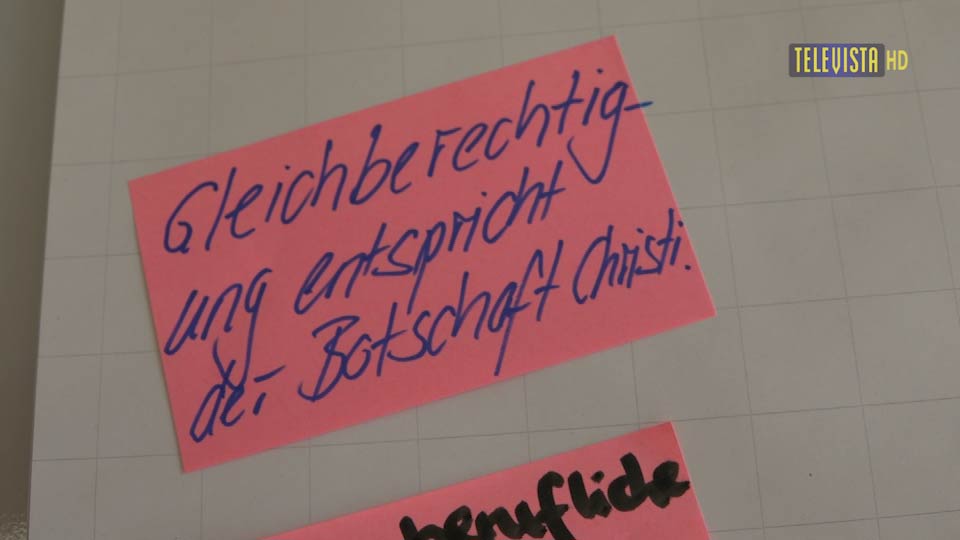 TELEVISTA HD
Gleichberechtig-
ung entspricht
der Botschaft Christi.
beruflide